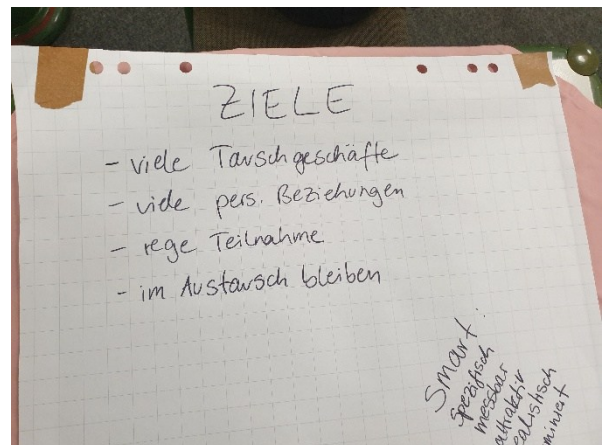 ZIELE
- viele Tauschgeschäfte
- viele pers. Beziehungen
- rege Teilnahme
- im Austausch bleiben
Smart:
spezifisch
messbar
attraktiv